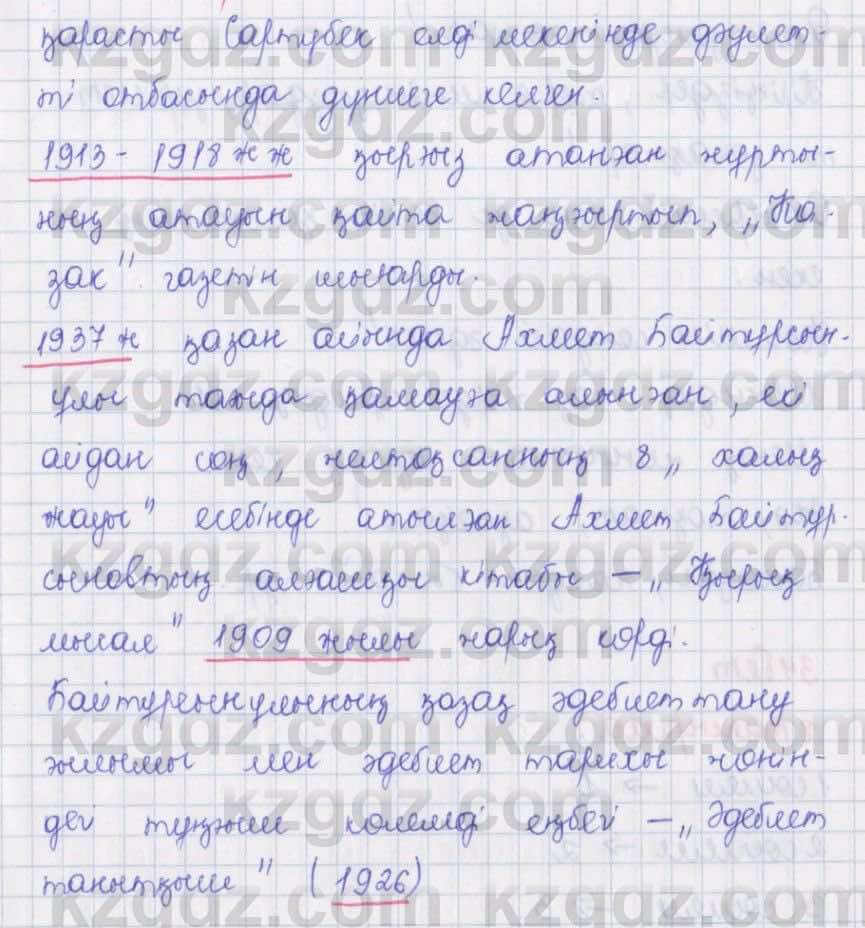 қарасты Сартүбек елді мекенінде дәулет-
ті отбасында дүниеге келген.
1913 - 1918 ж ж қырғыз атанған жұрты-
ның атауын қайта жаңғыртып, „Қа-
зақ" газетін шығарды.
1937 ж қазан айында Ахмет Байтұрсын-
ұлы тағыда қамауға алынған, екі
айдан соң, желтоқсанның 8 „ халық
жауы" есебінде атылған Ахмет Байтұр-
сыновтың алғашқы кітабы — „ Қырық
мысал" 1909 жылы жарық көрді.
Байтұрсынұлының қазақ әдебиеттану
ғылымы мен әдебиет тарихы жөнін-
дегі тұңғыш көлемді еңбегі — „ Әдебиет
танытқыш" (1926)
kzgdz.com